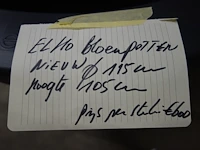 ELHO BloemPOTTEN
NIEUW ϕ 115cm
Hoogte 105cm
prijs per stuk: €600